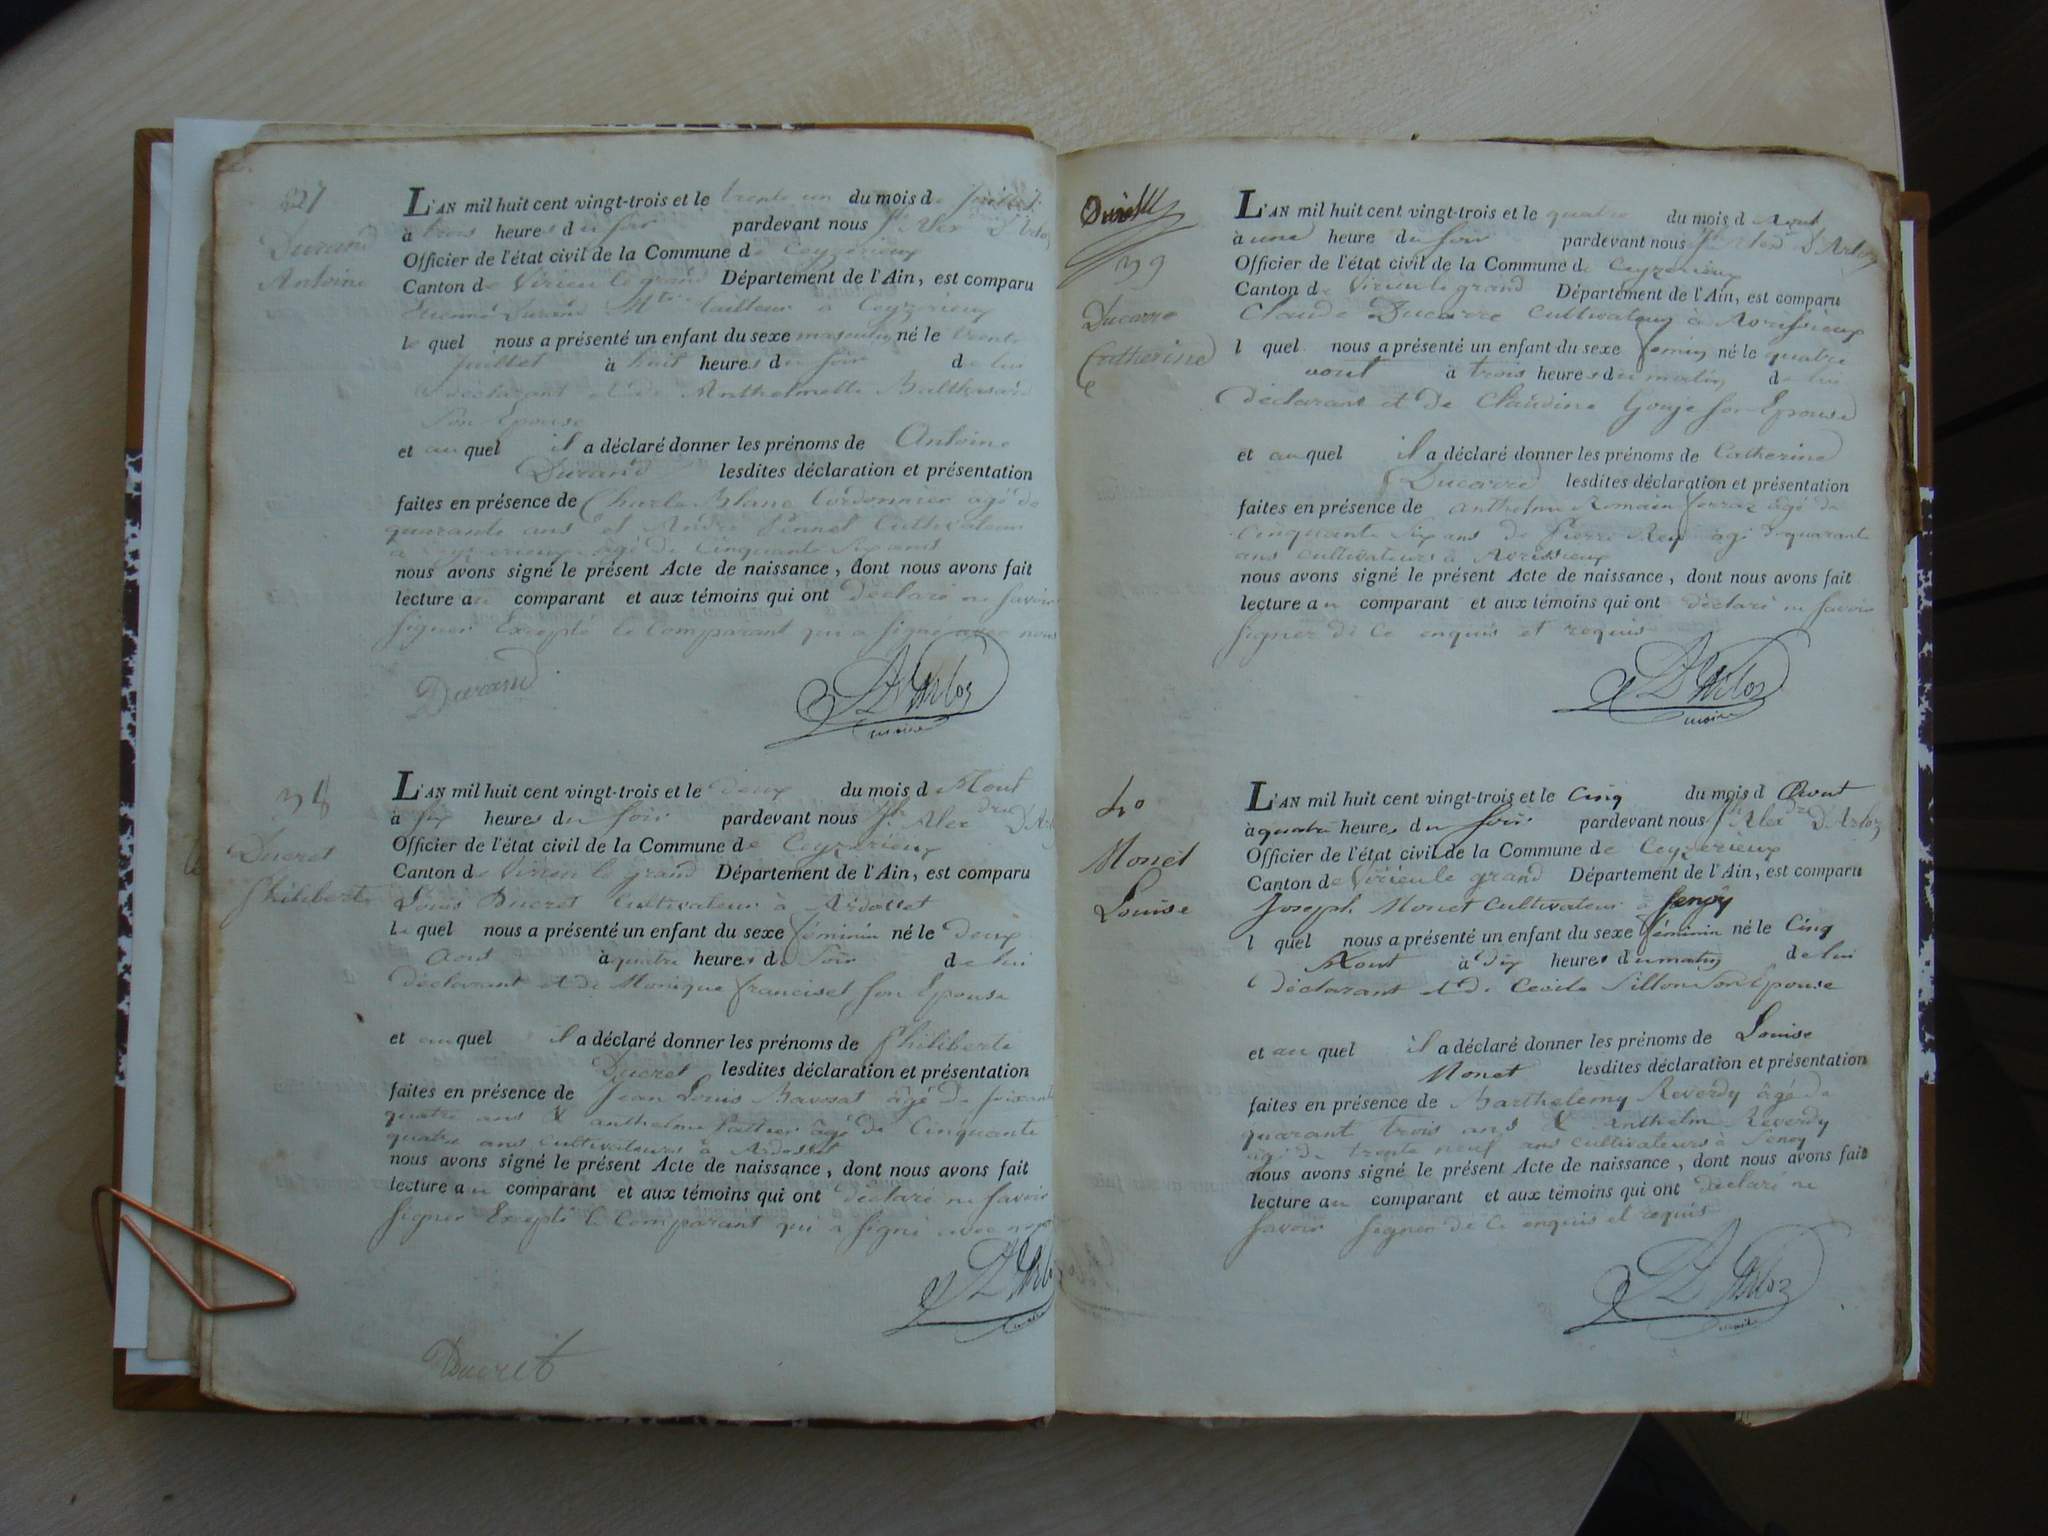 37
Durand
Antoine
L'AN mil huit cent vingt-trois et le trente un du mois de juillet
à trois heures du soir pardevant nous Jh Alex D'Arloz
Officier de l'état civil de la Commune de Ceyzerieux
Canton de Virieu le grand Département de l'Ain, est comparu
Durand tailleur a Ceyzerieux
le quel nous a présenté un enfant du sexe masculin né le trente
juillet à huit heures du soir de lui
déclarant et de Anthelmette
son Epouse
et au quel il a déclaré donner les prénoms de Antoine
Durand lesdites déclaration et présentation
faites en présence de Charle Blanc Cordonnier agé de
quarante ans et André Cultivateur
a Ceyzerieux agé de Cinquante six ans
nous avons signé le présent Acte de naissance, dont nous avons fait
lecture au comparant et aux témoins qui ont déclaré ne savoir
signer Excepté le Comparant qui a signé avec nous
Durand
D'Arloz
maire
38
Ducret
Philiberte
L'AN mil huit cent vingt-trois et le deux du mois d Aout
à six heures du soir pardevant nous Jh Alexdre D'Arl
Officier de l'état civil de la Commune de Ceyzerieux
Canton de Virieu le grand Département de l'Ain, est comparu
Louis Ducret Cultivateur à Ardosset
le quel nous a présenté un enfant du sexe féminin né le Deux
Aout à quatre heures du Soir de lui
déclarant et de Monique franciset son Epouse
et au quel il a déclaré donner les prénoms de Philiberte
Ducret lesdites déclaration et présentation
faites en présence de Jean Louis Bavosat âgé de soixante
quatre ans & anthelme âgé de Cinquante
quatre ans cultivateurs à Ardosset
nous avons signé le présent Acte de naissance, dont nous avons fait
lecture au comparant et aux témoins qui ont déclaré ne savoir
signer Excepté le Comparant qui a signé avec nous
D'Arlo
Ducret
39
Ducarre
Catherine
L'AN mil huit cent vingt-trois et le quatre du mois d Aout
à une heure du soir pardevant nous Jh Alexd D'Arloz
Officier de l'état civil de la Commune de Ceyzerieux
Canton de Virieu le grand Département de l'Ain, est comparu
Claude Ducarre Cultivateur à Avrissieux
l quel nous a présenté un enfant du sexe femin né le quatre
aout à trois heures du matin de lui
déclarant et de Claudine Gouje son Epouse
et au quel il a déclaré donner les prénoms de Catherine
Ducarre lesdites déclaration et présentation
faites en présence de anthelme Romain ferraz âgé de
Cinquante six ans de Pierre Rey agé de quarante
ans cultivateurs à Avrissieux
nous avons signé le présent Acte de naissance, dont nous avons fait
lecture au comparant et aux témoins qui ont déclaré ne savoir
signer de ce enquis et requis
D'Arloz
maire
40
Monet
Louise
L'AN mil huit cent vingt-trois et le Cinq du mois d Aout
à quatre heures du soir pardevant nous Jh Alexdre D'Arloz
Officier de l'état civil de la Commune de Ceyzerieux
Canton de Virieu le grand Département de l'Ain, est comparu
Joseph Monet Cultivateur à senoy
l quel nous a présenté un enfant du sexe féminin né le Cinq
Aout à dix heures du matin de lui
déclarant et de Cecile Sillon Son Epouse
et au quel il a déclaré donner les prénoms de Louise
Monet lesdites déclaration et présentation
faites en présence de Barthelemy Reverdy âgé de
quarant trois ans & Anthelm Reverdy
agé de trente neuf ans cultivateurs à Senoy
nous avons signé le présent Acte de naissance, dont nous avons fait
lecture au comparant et aux témoins qui ont déclaré ne
savoir signer de ce enquis et requis
D'Arloz
maire